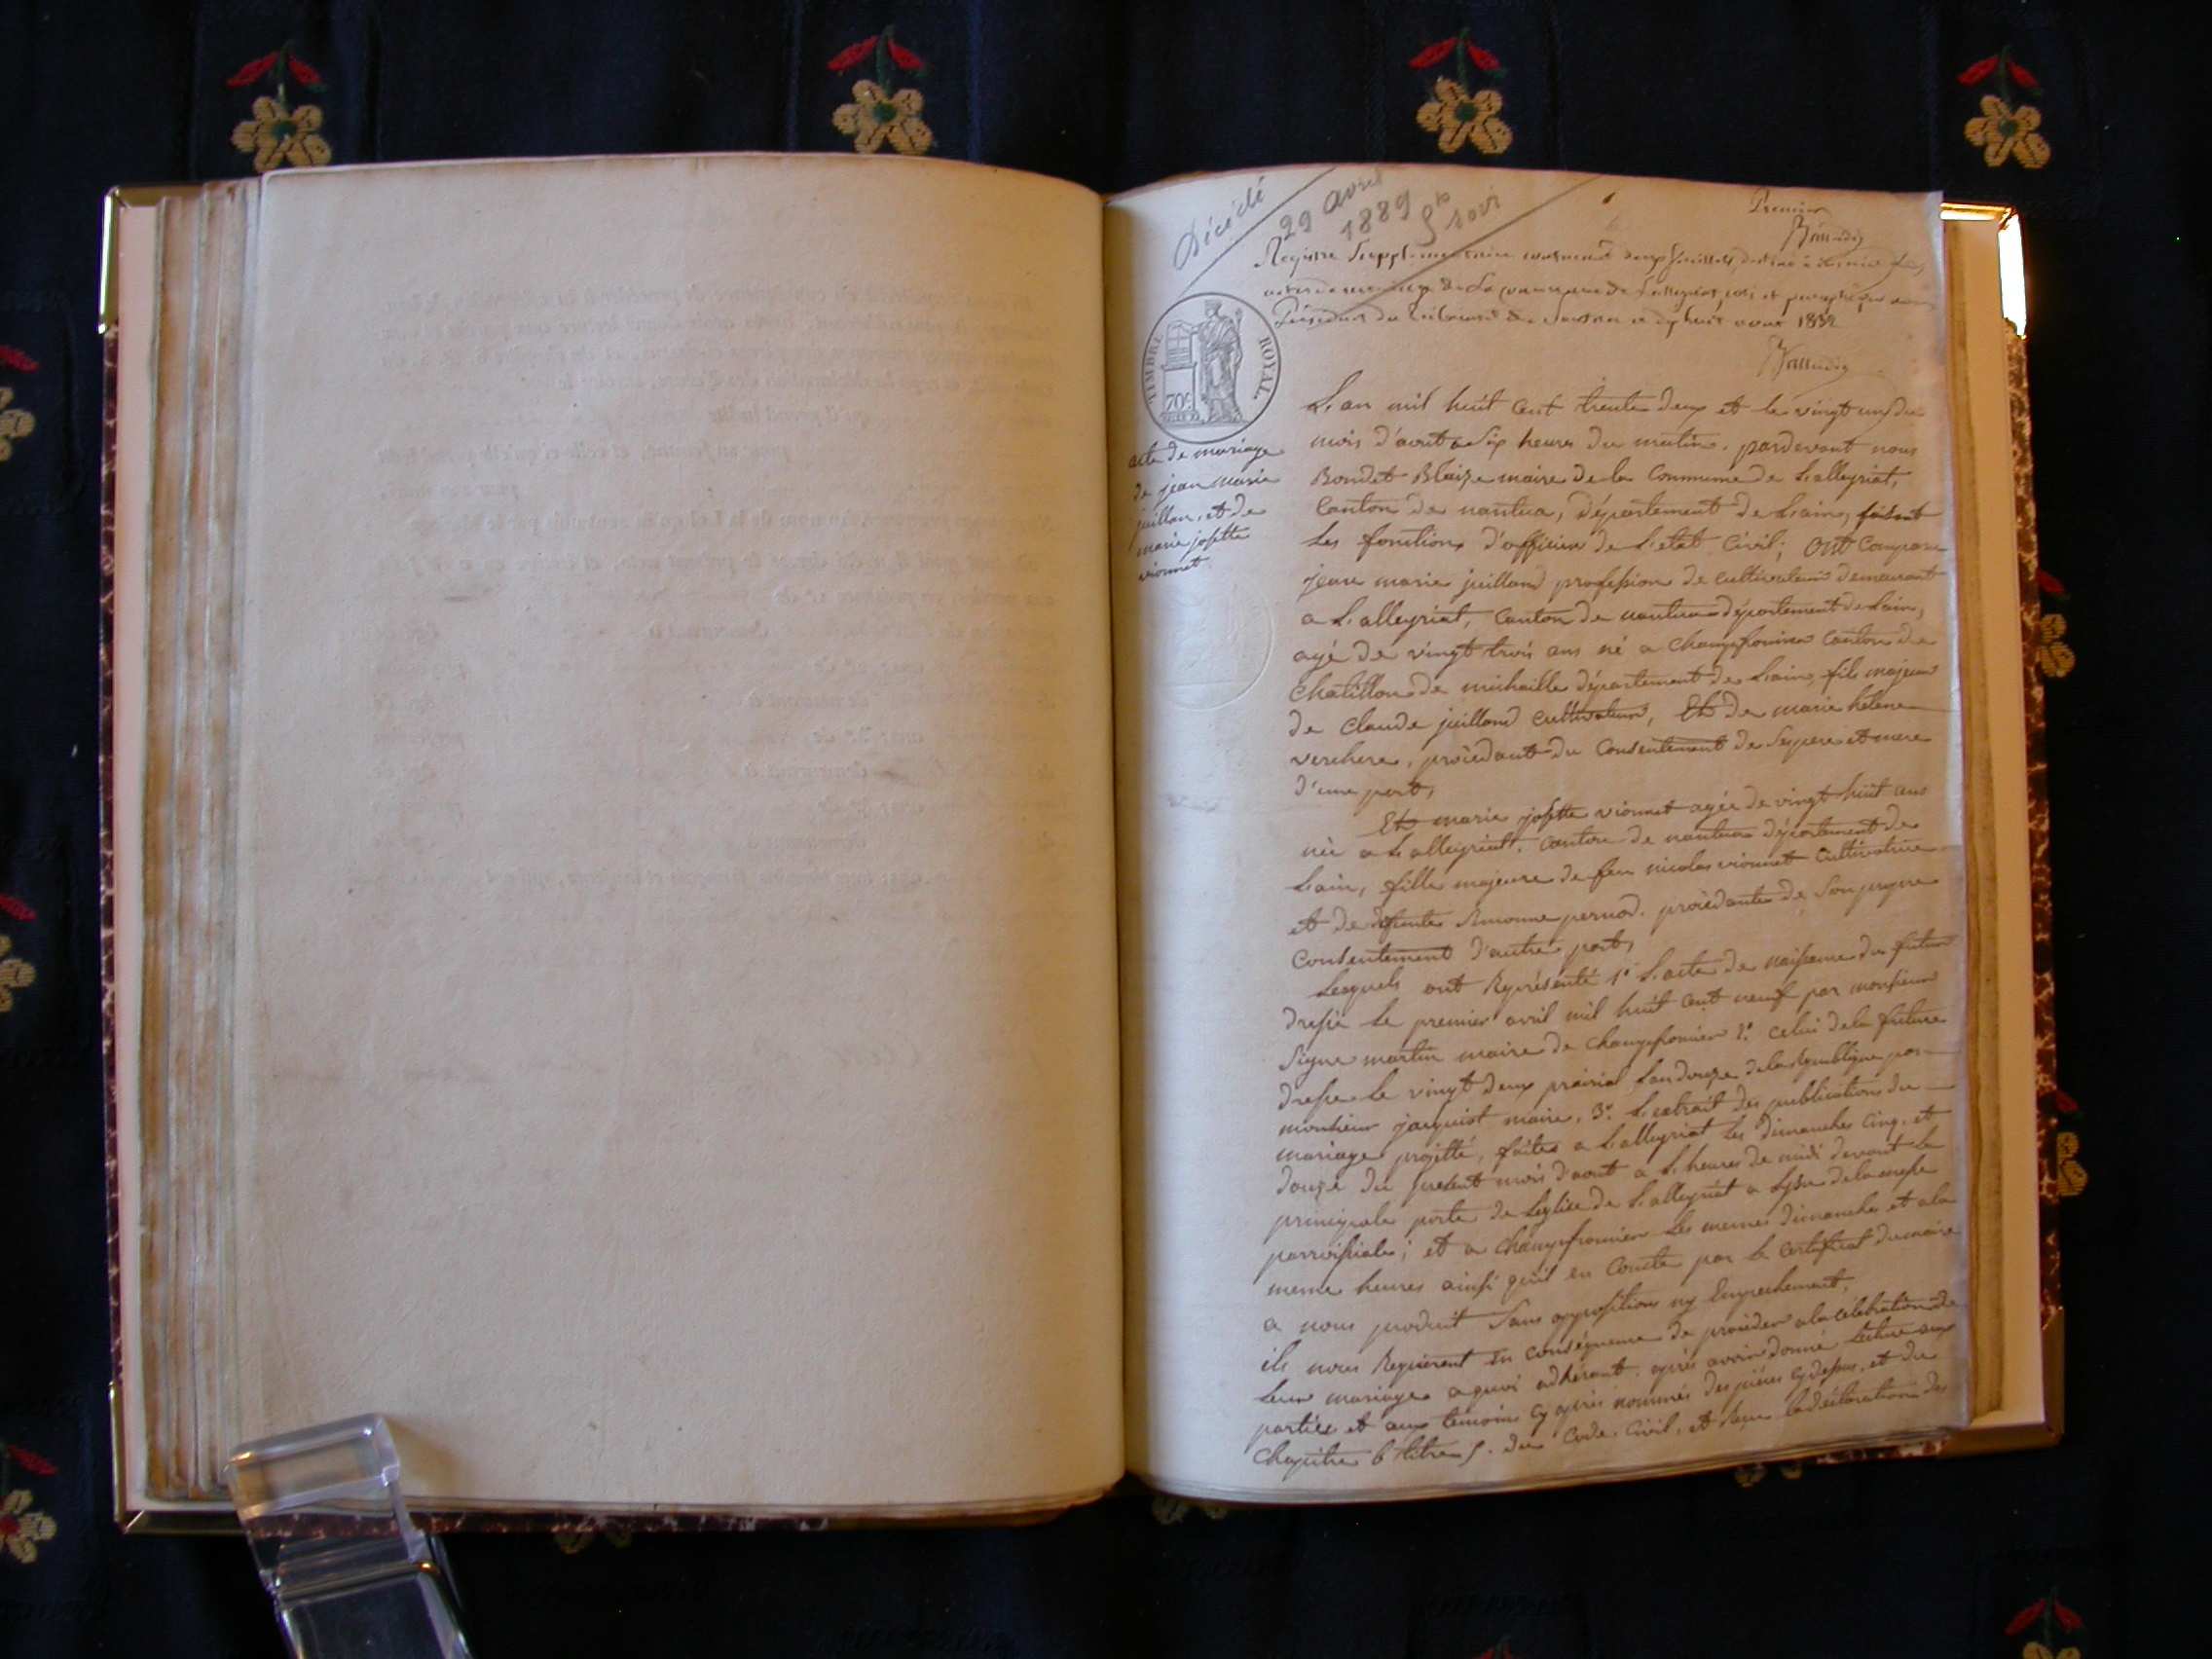 Décédé
29 avril
1889
Premier
Registre supplémentaire contenant deux feuillets, destiné à
actes de mariage de la commune de Lalleyriat, coté et paraphé par
Président du Tribunal de Nantua le dix huit aout 1832
TIMBRE ROYAL
70c
acte de mariage
de jean marie
juilland, et de
marie josette
vionnet
L'an mil huit cent trente deux et le vingt un du
mois d'aout a Six heures du matin. pardevant nous
Bondet Blaize maire de la Commune de Lalleyriat,
Canton de nantua, département de L'ain, faisant
les fonctions d'officier de L'etat Civil; ont Comparu
jean marie juilland profession de Cultivateur demeurant
a Lalleyriat, Canton de nantua département de L'ain,
agé de vingt trois ans né a Champfromier Canton de
Chatillon de michaille département de L'ain, fils majeur
de Claude juilland Cultivateur, Et de marie helene
verchere, procèdant du Consentement de Ses pere et mere
d'une part,
Et marie josette vionnet agée de vingt huit ans
née a Lalleyriat, Canton de nantua département de
L'ain, fille majeure de feu nicolas vionnet Cultivateur
et de defunte Simonne pernod. procèdante de Son propre
Consentement d'autre part,
Lesquels ont Représenté 1º L'acte de naissance du futur
dressé Le premier avril mil huit Cent neuf par monsieur
Signe martin maire de Champfromier 2º. Celui de la future
dressé Le vingt deux prairial L'an douze de la Republique par
monsieur jacquiot maire, 3º. L'extrait des publications du
mariage projetté, faites a Lalleyriat Les dimanches Cinq, et
douze du present mois d'aout a L'heures de midi devant La
principale porte de L'eglise de Lalleyriat a L'issue de la messe
parroissiale; et a Champfromier Les memes dimanches et a la
meme heures ainsi qu'il en Conste par Le Certificat du maire
a nous produit Sans opposition ny Empechement,
ils nous Requierent En conséquence de procèder a la Celebration de
Leur mariage a quoi adhérant. après avoir donné Lecture aux
parties et aux temoins Cy après nommés des pièces Cy dessus, et du
Chapitre 6 titre 5. du Code Civil, et Reçu la déclaration des